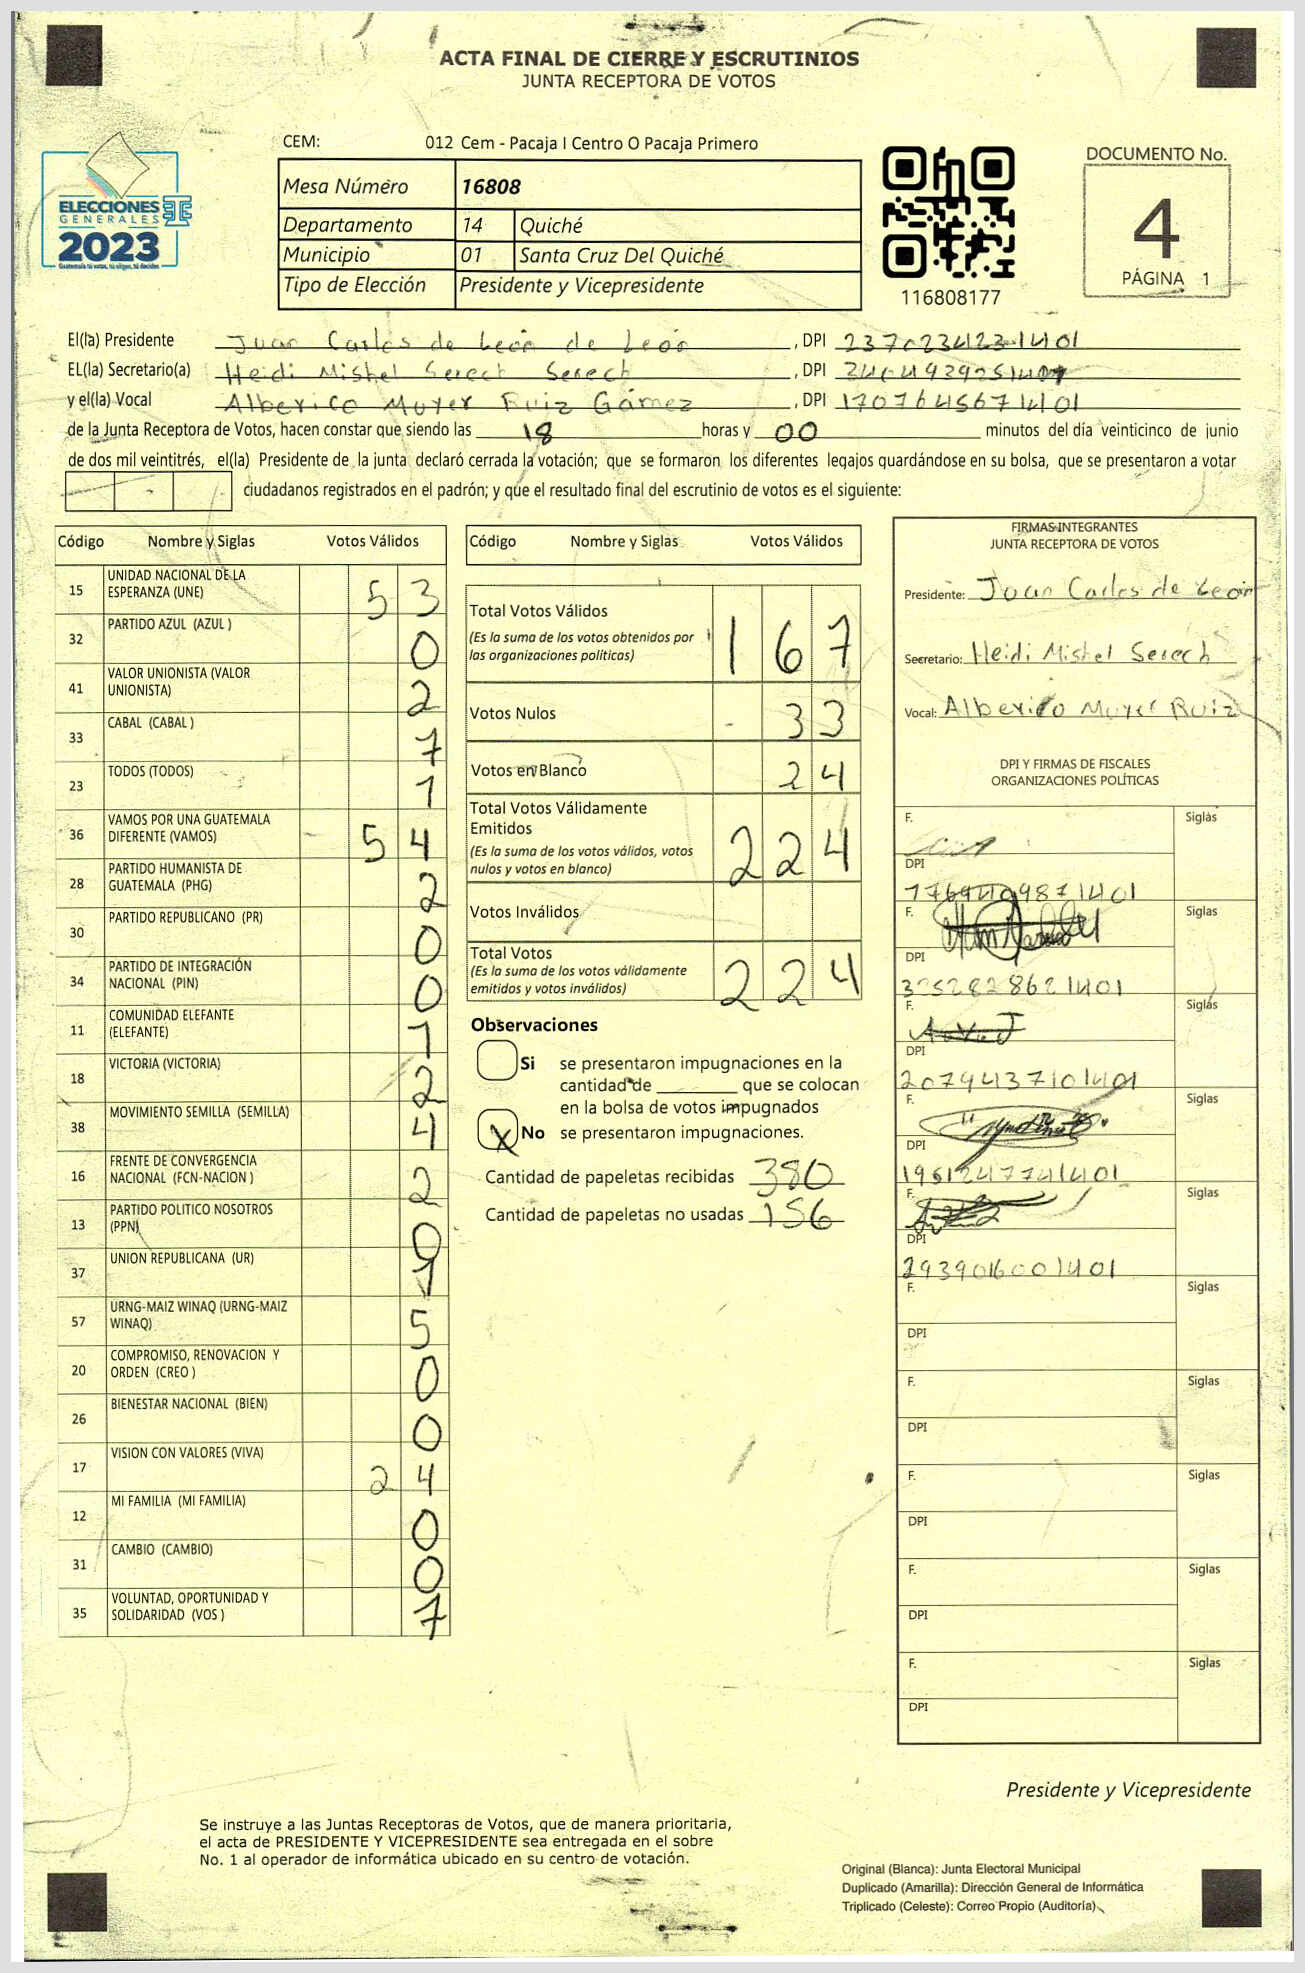 ACTA FINAL DE CIERRE Y ESCRUTINIOS
JUNTA RECEPTORA DE VOTOS
CEM: 012 Cem - Pacaja I Centro O Pacaja Primero
ELECCIONES
GENERALES
2023
Mesa Número 16808
Departamento 14 Quiché
Municipio 01 Santa Cruz Del Quiché
Tipo de Elección Presidente y Vicepresidente
116808177
DOCUMENTO No.
4
PÁGINA 1
El(la) Presidente Juan Carlos de León de León, DPI
EL(la) Secretario(a) Heidi Mishel Serech Serech, DPI
y el(la) Vocal Alberico Muyer Ruiz Gámez, DPI 1707645671401
de la Junta Receptora de Votos, hacen constar que siendo las 18 horas y 00 minutos del día veinticinco de junio
de dos mil veintitrés, el(la) Presidente de la junta declaró cerrada la votación; que se formaron los diferentes legajos guardándose en su bolsa, que se presentaron a votar
ciudadanos registrados en el padrón; y que el resultado final del escrutinio de votos es el siguiente:
Código Nombre y Siglas Votos Válidos
15 UNIDAD NACIONAL DE LA ESPERANZA (UNE) 53
32 PARTIDO AZUL (AZUL ) 0
41 VALOR UNIONISTA (VALOR UNIONISTA) 2
33 CABAL (CABAL ) 7
23 TODOS (TODOS) 1
36 VAMOS POR UNA GUATEMALA DIFERENTE (VAMOS) 54
28 PARTIDO HUMANISTA DE GUATEMALA (PHG) 2
30 PARTIDO REPUBLICANO (PR) 0
34 PARTIDO DE INTEGRACIÓN NACIONAL (PIN) 0
11 COMUNIDAD ELEFANTE (ELEFANTE) 1
18 VICTORIA (VICTORIA) 2
38 MOVIMIENTO SEMILLA (SEMILLA) 4
16 FRENTE DE CONVERGENCIA NACIONAL (FCN-NACION ) 2
13 PARTIDO POLITICO NOSOTROS (PPN) 0
37 UNION REPUBLICANA (UR)
57 URNG-MAIZ WINAQ (URNG-MAIZ WINAQ) 5
20 COMPROMISO, RENOVACION Y ORDEN (CREO ) 0
26 BIENESTAR NACIONAL (BIEN) 0
17 VISION CON VALORES (VIVA) 24
12 MI FAMILIA (MI FAMILIA) 0
31 CAMBIO (CAMBIO) 0
35 VOLUNTAD, OPORTUNIDAD Y SOLIDARIDAD (VOS ) 7
Código Nombre y Siglas Votos Válidos
Total Votos Válidos 167
(Es la suma de los votos obtenidos por
las organizaciones políticas)
Votos Nulos - 33
Votos en Blanco 24
Total Votos Válidamente
Emitidos 224
(Es la suma de los votos válidos, votos
nulos y votos en blanco)
Votos Inválidos
Total Votos 224
(Es la suma de los votos válidamente
emitidos y votos inválidos)
Observaciones
Si se presentaron impugnaciones en la
cantidad de ________ que se colocan
en la bolsa de votos impugnados
X No se presentaron impugnaciones.
Cantidad de papeletas recibidas 380
Cantidad de papeletas no usadas 156
FIRMAS INTEGRANTES
JUNTA RECEPTORA DE VOTOS
Presidente: Juan Carlos de León
Secretario: Heidi Mishel Serech
Vocal: Alberico Muyer Ruiz
DPI Y FIRMAS DE FISCALES
ORGANIZACIONES POLÍTICAS
F. Siglas
DPI
F. Siglas
DPI
F. Siglas
DPI 2079437101401
F. Siglas
DPI 1951247741401
F. Siglas
DPI 2939016001401
F. Siglas
DPI
F. Siglas
DPI
F. Siglas
DPI
F. Siglas
DPI
F. Siglas
DPI
Presidente y Vicepresidente
Se instruye a las Juntas Receptoras de Votos, que de manera prioritaria,
el acta de PRESIDENTE Y VICEPRESIDENTE sea entregada en el sobre
No. 1 al operador de informática ubicado en su centro de votación.
Original (Blanca): Junta Electoral Municipal
Duplicado (Amarilla): Dirección General de Informática
Triplicado (Celeste): Correo Propio (Auditoría)